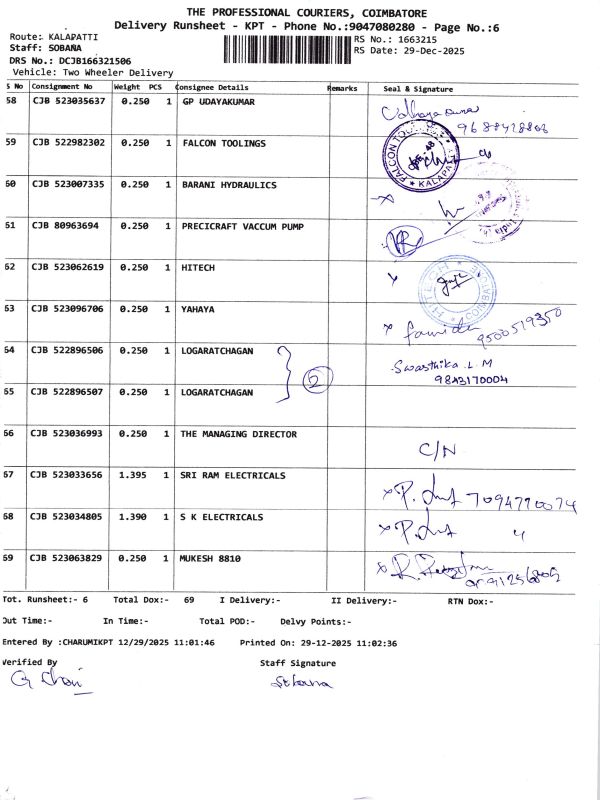 THE PROFESSIONAL COURIERS, COIMBATORE
Delivery Runsheet - KPT - Phone No.:9047080280 - Page No.:6
Route: KALAPATTI
RS No.: 1663215
Staff: SOBANA
RS Date: 29-Dec-2025
DRS No.: DCJB166321506
Vehicle: Two Wheeler Delivery
S No Consignment No Weight PCS Consignee Details Remarks Seal & Signature
58 CJB 523035637 0.250 1 GP UDAYAKUMAR
59 CJB 522982302 0.250 1 FALCON TOOLINGS
FALCON TOOLINGS KALAPATTI
60 CJB 523007335 0.250 1 BARANI HYDRAULICS
61 CJB 80963694 0.250 1 PRECICRAFT VACCUM PUMP
62 CJB 523062619 0.250 1 HITECH
HITECH COIMBATORE
63 CJB 523096706 0.250 1 YAHAYA
9500519350
64 CJB 522896506 0.250 1 LOGARATCHAGAN Swasthika.L.M
2 9843170004
65 CJB 522896507 0.250 1 LOGARATCHAGAN
66 CJB 523036993 0.250 1 THE MANAGING DIRECTOR C/N
67 CJB 523033656 1.395 1 SRI RAM ELECTRICALS
7094770074
68 CJB 523034805 1.390 1 S K ELECTRICALS
69 CJB 523063829 0.250 1 MUKESH 8810
Tot. Runsheet:- 6 Total Dox:- 69 I Delivery:- II Delivery:- RTN Dox:-
Out Time:- In Time:- Total POD:- Delvy Points:-
Entered By :CHARUMIKPT 12/29/2025 11:01:46 Printed On: 29-12-2025 11:02:36
Verified By Staff Signature
Sobana